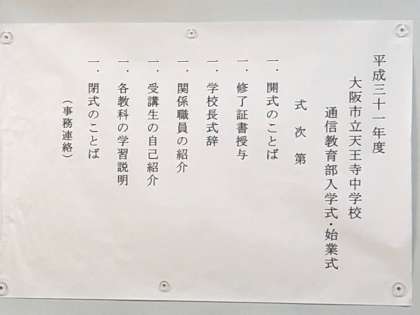 平成三十一年度
大阪市立天王寺中学校
通信教育部入学式・始業式
式次第
一．開式のことば
一．修了証書授与
一．学校長式辞
一．関係職員の紹介
一．受講生の自己紹介
一．各教科の学習説明
一．閉式のことば
（事務連絡）